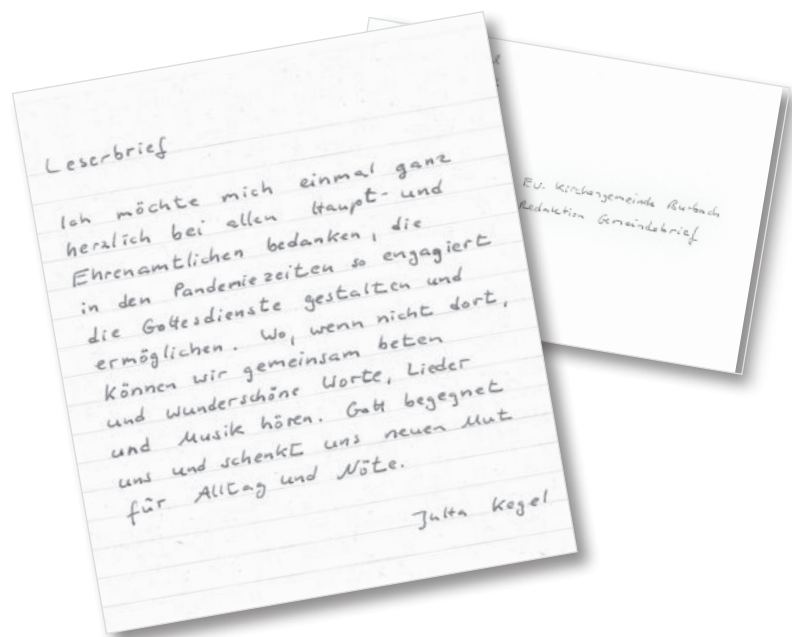 Leserbrief
Ich möchte mich einmal ganz
herzlich bei allen Haupt- und
Ehrenamtlichen bedanken, die
in den Pandemiezeiten so engagiert
die Gottesdienste gestalten und
ermöglichen. Wo, wenn nicht dort,
können wir gemeinsam beten
und wunderschöne Worte, Lieder
und Musik hören. Gott begegnet
uns und schenkt uns neuen Mut
für Alltag und Nöte.
Kogel
Ev. Kirchengemeinde Burbach
Redaktion Gemeindebrief